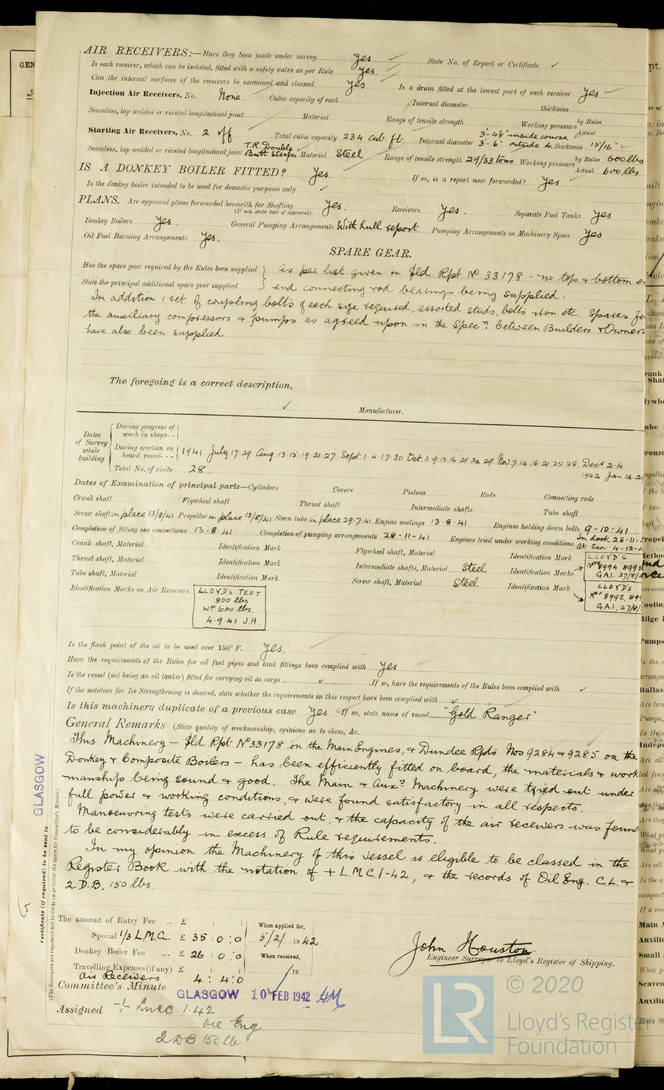 AIR RECEIVERS:—Have they been made under survey Yes. State No. of Report or Certificate
Is each receiver, which can be isolated, fitted with a safety valve as per Rule Yes.
Can the internal surfaces of the receivers be examined and cleaned Yes Is a drain fitted at the lowest part of each receiver Yes
Injection Air Receivers, No. None. Cubic capacity of each Internal diameter thickness
Seamless, lap welded or riveted longitudinal joint Material Range of tensile strength Working pressure by Rules Actual
Starting Air Receivers, No. 2 off Total cubic capacity 234 cub ft. Internal diameter 3'-4⅛" inside course 3'-6" outside thickness 15/16"
Seamless, lap welded or riveted longitudinal joint T.R. Double Butt straps Material Steel Range of tensile strength 29/33 tons Working pressure by Rules 600 lbs Actual 600 lbs.
IS A DONKEY BOILER FITTED? Yes If so, is a report now forwarded? Yes
Is the donkey boiler intended to be used for domestic purposes only
PLANS. Are approved plans forwarded herewith for Shafting Yes. Receivers Yes. Separate Fuel Tanks Yes
(If not, state date of approval)
Donkey Boilers Yes. General Pumping Arrangements With hull report. Pumping Arrangements in Machinery Space Yes
Oil Fuel Burning Arrangements Yes.
SPARE GEAR.
Has the spare gear required by the Rules been supplied as per list given on Gld Rpt No 33178 - no top & bottom
State the principal additional spare gear supplied end connecting rod bearings being supplied.
In addition 1 set of coupling bolts of each size required, assorted studs, bolts iron etc. Spares
the auxiliary compressors & pumps as agreed upon in the Specn. between Builders & Owners
have also been supplied
The foregoing is a correct description,
Manufacturer.
Dates of Survey while building
During progress of work in shops--
During erection on board vessel--- 1941 July 17·29 Aug 13·15·19·21·27 Sept. 1·4·17·30 Oct 3·9·13·16·21·29 Nov 7·14·18·21·25·28. Decr 2·4 1942 Jan 14
Total No. of visits 28
Dates of Examination of principal parts—Cylinders Covers Pistons Rods Connecting rods
Crank shaft Flywheel shaft Thrust shaft Intermediate shafts Tube shaft
Screw shaft in place 13/8/41 Propeller in place 13/8/41 Stern tube in place 29.7.41. Engine seatings 13·8·41 Engines holding down bolts 9-10-41
Completion of fitting sea connections 13-8-41 Completion of pumping arrangements 28-11-41 Engines tried under working conditions In Dock 28-11- At Sea 4-12-
Crank shaft, Material Identification Mark Flywheel shaft, Material Identification Mark
Thrust shaft, Material Identification Mark Intermediate shafts, Material Steel Identification Marks LLOYD'S Nos 8994 899 GAI. 27/8/
Tube shaft, Material Identification Mark Screw shaft, Material Steel Identification Mark LLOYD'S Nos 8992 GAI. 27/8/
Identification Marks on Air Receivers
LLOYD'S TEST
800 lbs
WP 600 lbs
4·9·41 J.H.
Is the flash point of the oil to be used over 150° F. Yes.
Have the requirements of the Rules for oil fuel pipes and tank fittings been complied with Yes
Is the vessel (not being an oil tanker) fitted for carrying oil as cargo If so, have the requirements of the Rules been complied with
If the notation for Ice Strengthening is desired, state whether the requirements in this respect have been complied with
Is this machinery duplicate of a previous case Yes If so, state name of vessel "Gold Ranger"
General Remarks (State quality of workmanship, opinions as to class, &c.
This Machinery - Gld Rpt No 33178 on the Main Engines, & Dundee Rpts Nos 9284 & 9285 on the
Donkey & Composite Boilers - has been efficiently fitted on board, the materials & work
manship being sound & good. The Main & Auxy Machinery were tried out under
full power & working conditions, & were found satisfactory in all respects.
Manoeuvring tests were carried out, & the capacity of the air receivers was found
to be considerably in excess of Rule requirements.
In my opinion the Machinery of this vessel is eligible to be classed in the
Register Book with the notation of + L.M.C. 1-42, & the records of Oil Eng. C.L. &
2 D.B. 150 lbs.
GLASGOW
Certificate (if required) to be sent to
The amount of Entry Fee .. £ : : When applied for,
Special 1/3 L.M.C. £ 35 : 0 : 0 5/2/1942
Donkey Boiler Fee £ 26 : 0 : 0 When received,
Travelling Expenses (if any) £ : : 19
Air Receivers 4 : 4 : 0
John Houston.
Engineer Surveyor to Lloyd's Register of Shipping.
Committee's Minute GLASGOW 10 FEB 1942
Assigned + LMC 1.42
Oil Eng
2 DB 150 lb
© 2020
LR
Lloyd's Register
Foundation